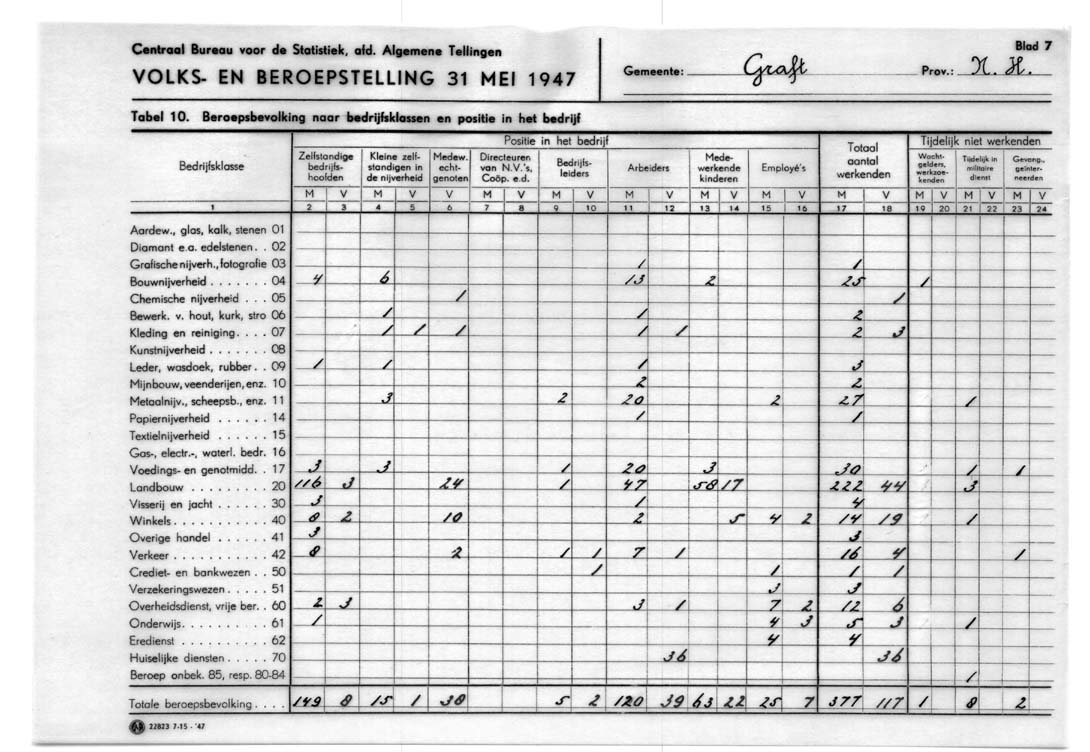 Centraal Bureau voor de Statistiek, afd. Algemene Tellingen
VOLKS- EN BEROEPSTELLING 31 MEI 1947
Gemeente: Graft
Blad 7
Prov.: N. H.
Tabel 10. Beroepsbevolking naar bedrijfsklassen en positie in het bedrijf
Bedrijfsklasse
Positie in het bedrijf
Zelfstandige bedrijfs-hoofden
Kleine zelf-standigen in de nijverheid
Medew. echt-genoten
Directeuren van N.V.'s, Coöp. e.d.
Bedrijfs-leiders
Arbeiders
Mede-werkende kinderen
Employé's
Totaal aantal werkenden
Tijdelijk niet werkenden
Wacht-gelders, werkzoe-kenden
Tijdelijk in militaire dienst
Gevang., geïnter-neerden
M V M V V M V M V M V M V M V M V M V M V M V
1 2 3 4 5 6 7 8 9 10 11 12 13 14 15 16 17 18 19 20 21 22 23 24
Aardew., glas, kalk, stenen 01
Diamant e.a. edelstenen . . 02
Grafische nijverh., fotografie 03 1 1
Bouwnijverheid . . . . . . . 04 4 6 13 2 25 1
Chemische nijverheid . . . 05 1 1
Bewerk. v. hout, kurk, stro 06 1 1 2
Kleding en reiniging . . . . 07 1 1 1 1 1 2 3
Kunstnijverheid . . . . . . . 08
Leder, wasdoek, rubber . . 09 1 1 1 3
Mijnbouw, veenderijen, enz. 10 2 2
Metaalnijv., scheepsb., enz. 11 3 2 20 2 27 1
Papiernijverheid . . . . . . 14 1 1
Textielnijverheid . . . . . 15
Gas-, electr.-, waterl. bedr. 16
Voedings- en genotmidd. . 17 3 3 1 20 3 30 1 1
Landbouw . . . . . . . . . 20 116 3 24 1 47 58 17 222 44 3
Visserij en jacht . . . . . . 30 3 1 4
Winkels . . . . . . . . . . . 40 8 2 10 2 5 4 2 14 19 1
Overige handel . . . . . . 41 3 3
Verkeer . . . . . . . . . . . 42 8 2 1 1 7 1 16 4 1
Crediet- en bankwezen . . 50 1 1 1 1
Verzekeringswezen . . . . . 51 3 3
Overheidsdienst, vrije ber. . 60 2 3 3 1 7 2 12 6
Onderwijs . . . . . . . . . . 61 1 4 3 5 3 1
Eredienst . . . . . . . . . . 62 4 4
Huiselijke diensten . . . . . 70 36 36
Beroep onbek. 85, resp. 80-84 1
Totale beroepsbevolking . . . . 149 8 15 1 38 5 2 120 39 63 22 25 7 377 117 1 8 2
22823 7-15 - '47